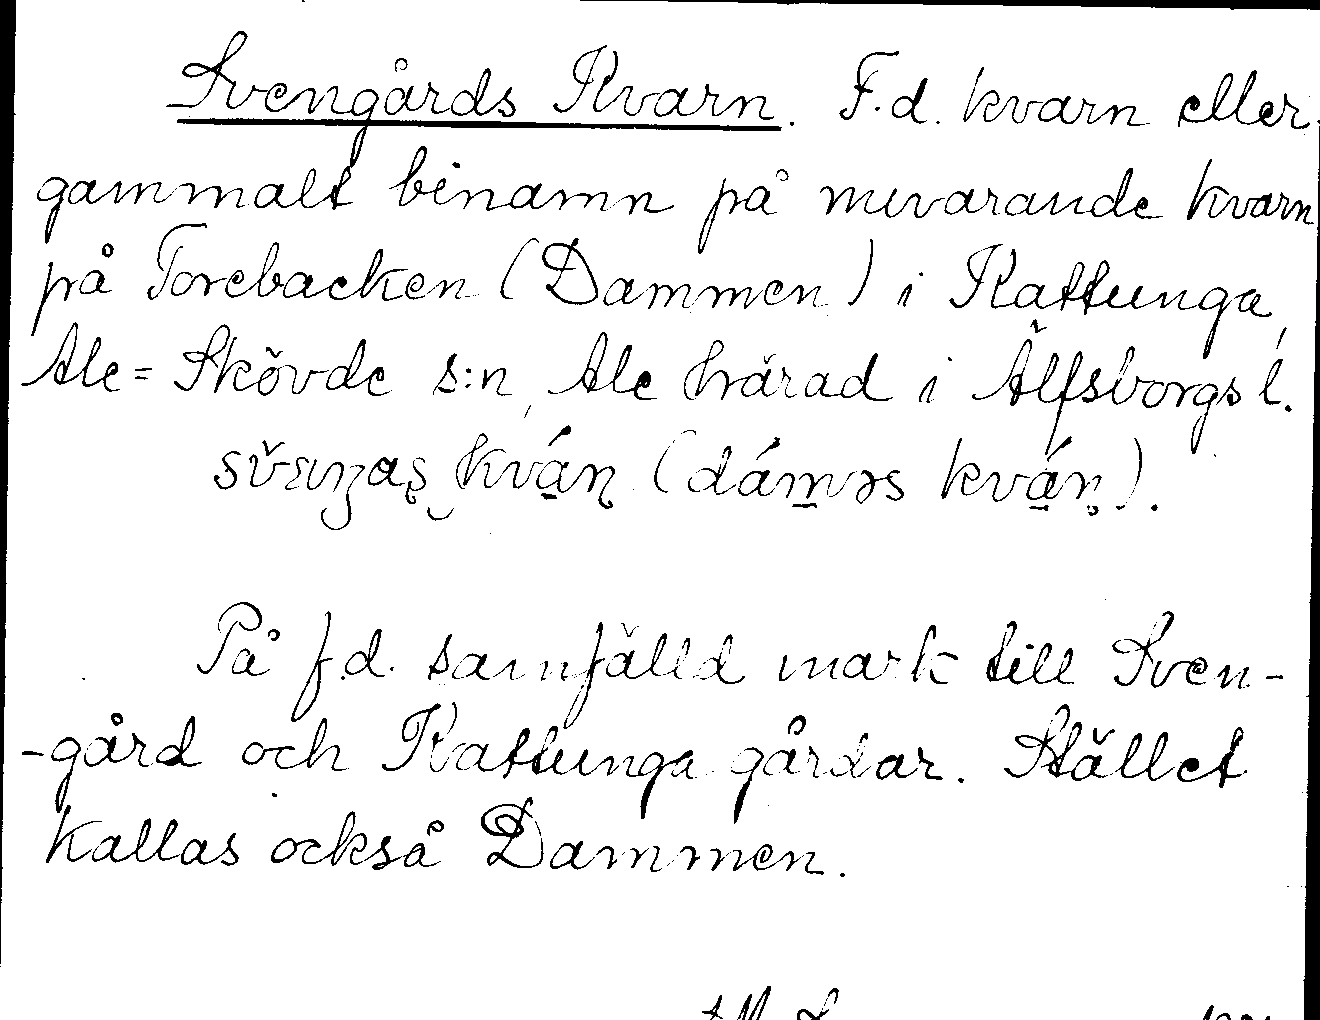 Svengårds Kvarn. F.d. kvarn eller
gammalt binamn på nuvarande kvarn
på Torebacken (Dammen) i Kattunga,
Ale=Skövde s:n, Ale härad i Älfsborgs l.
kván (dáməs kván).
På f.d. samfälld mark till Sven-
-gård och Kattunga gårdar. Stället
kallas också Dammen.